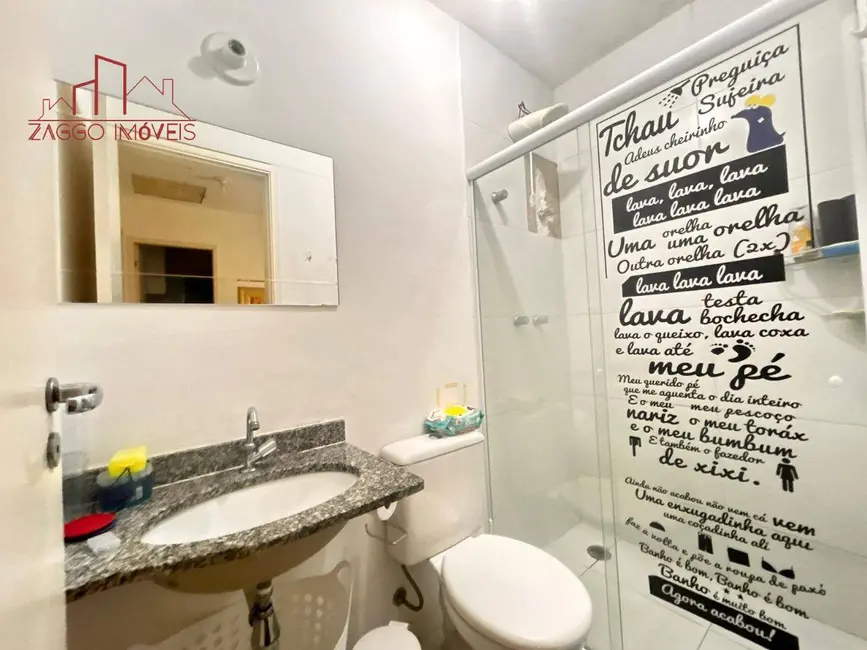 ZAGGO IMÓVEIS
Preguiça
Tchau Sujeira
Adeus cheirinho
de suor
lava, lava, lava
lava lava lava
Uma orelha uma orelha
Outra orelha (2x)
lava lava lava
lava testa
bochecha
lava o queixo, lava coxa
e lava até
meu pé
Meu querido pé
que me aguenta o dia inteiro
E o meu meu pescoço
nariz o meu toráx
e o meu bumbum
E também o fazedor
de xixi.
Ainda não acabou não vem cá vem
Uma enxugadinha aqui
uma coçadinha ali
faz a volta e põe a roupa de paxó
Banho é bom, Banho é bom
Banho é muito bom
Agora acabou!